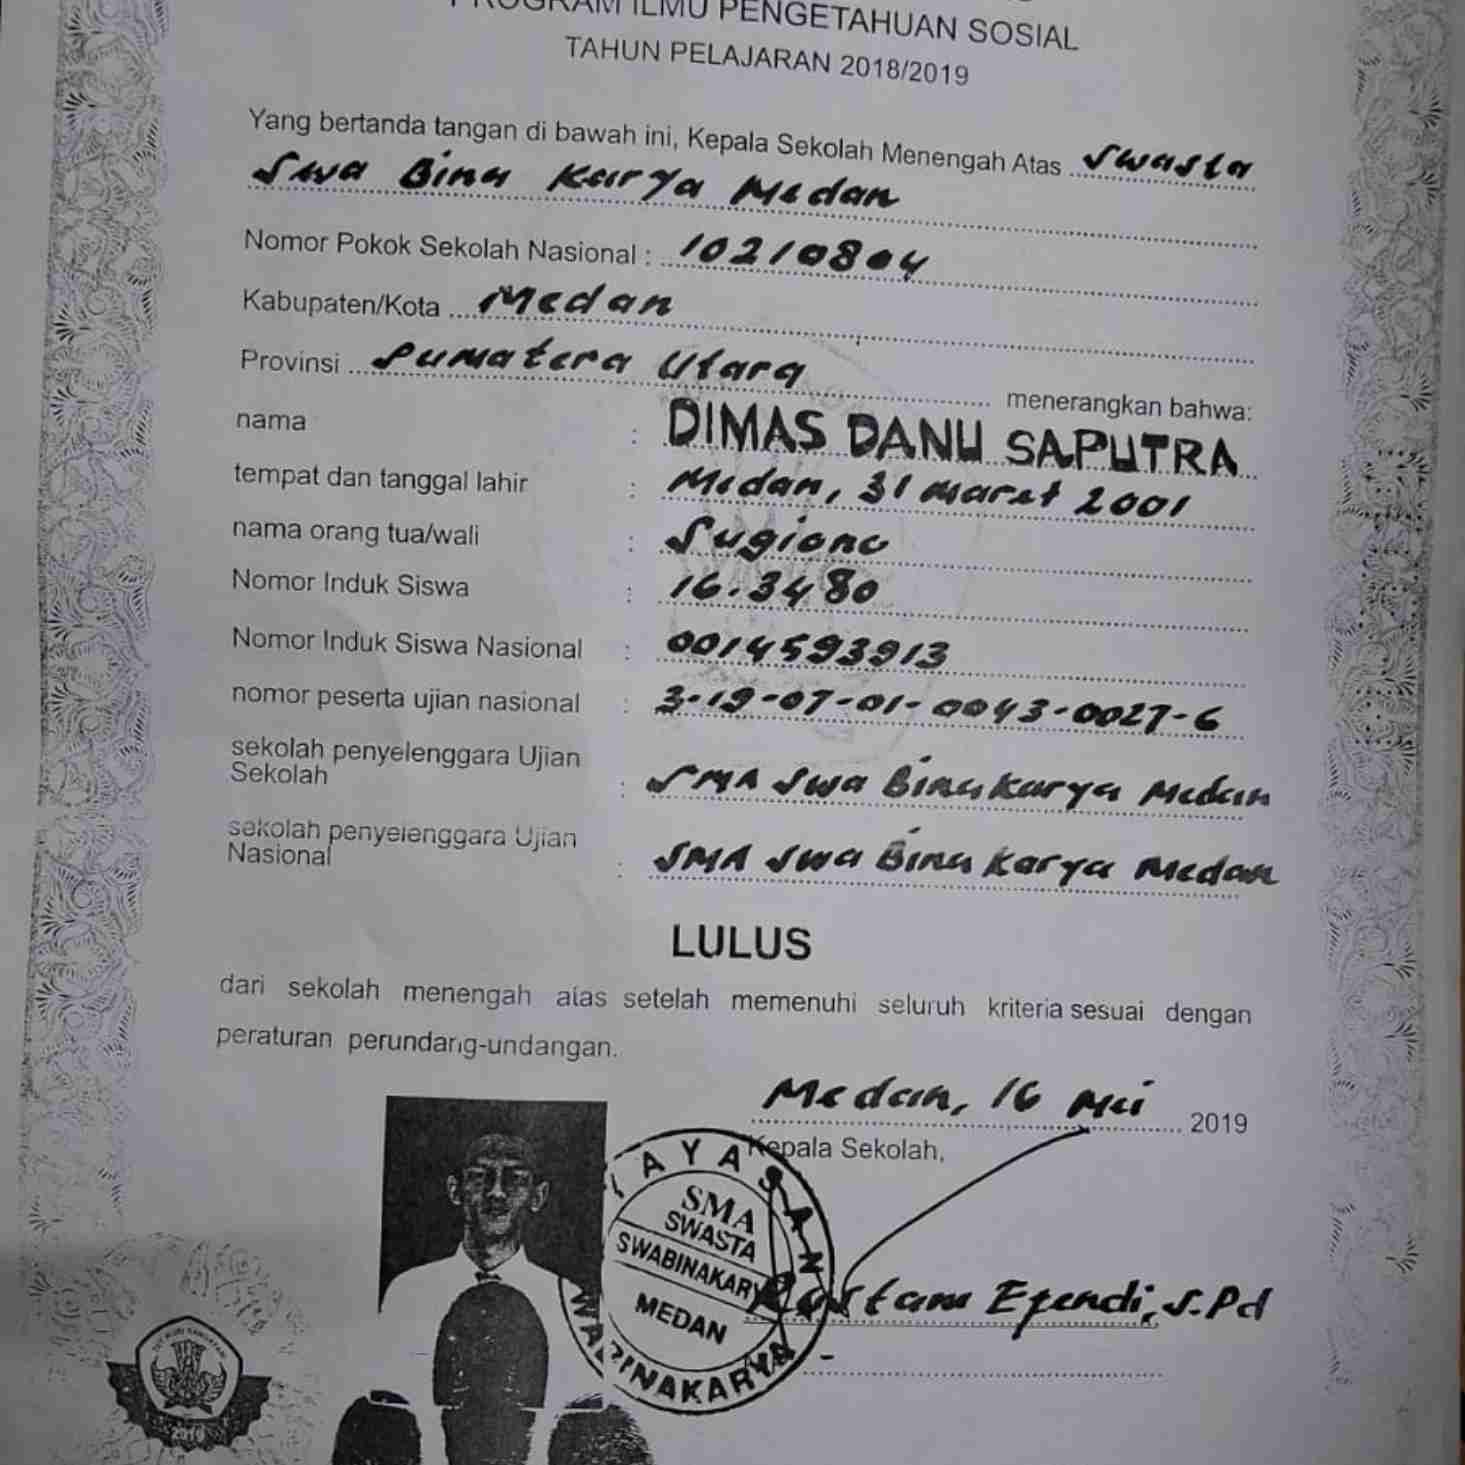 PROGRAM ILMU PENGETAHUAN SOSIAL
TAHUN PELAJARAN 2018/2019
Yang bertanda tangan di bawah ini, Kepala Sekolah Menengah Atas Swasta
Swa Bina Karya Medan
Nomor Pokok Sekolah Nasional : 10210804
Kabupaten/Kota Medan
Provinsi Sumatera Utara menerangkan bahwa:
nama : DIMAS DANU SAPUTRA
tempat dan tanggal lahir : Medan, 31 Maret 2001
nama orang tua/wali : Sugiono
Nomor Induk Siswa : 16.3480
Nomor Induk Siswa Nasional : 0014593913
nomor peserta ujian nasional : 3-19-07-01-0043-0027-6
sekolah penyelenggara Ujian
Sekolah : SMA Swa Bina Karya Medan
sekolah penyelenggara Ujian
Nasional : SMA Swa Bina Karya Medan
LULUS
dari sekolah menengah atas setelah memenuhi seluruh kriteria sesuai dengan
peraturan perundang-undangan.
Medan, 16 Mei 2019
Kepala Sekolah,
YAYASAN
SMA
SWASTA
SWABINAKARYA
MEDAN
SWABINAKARYA
Rustam Efendi, S.Pd
TUT WURI HANDAYANI
2019